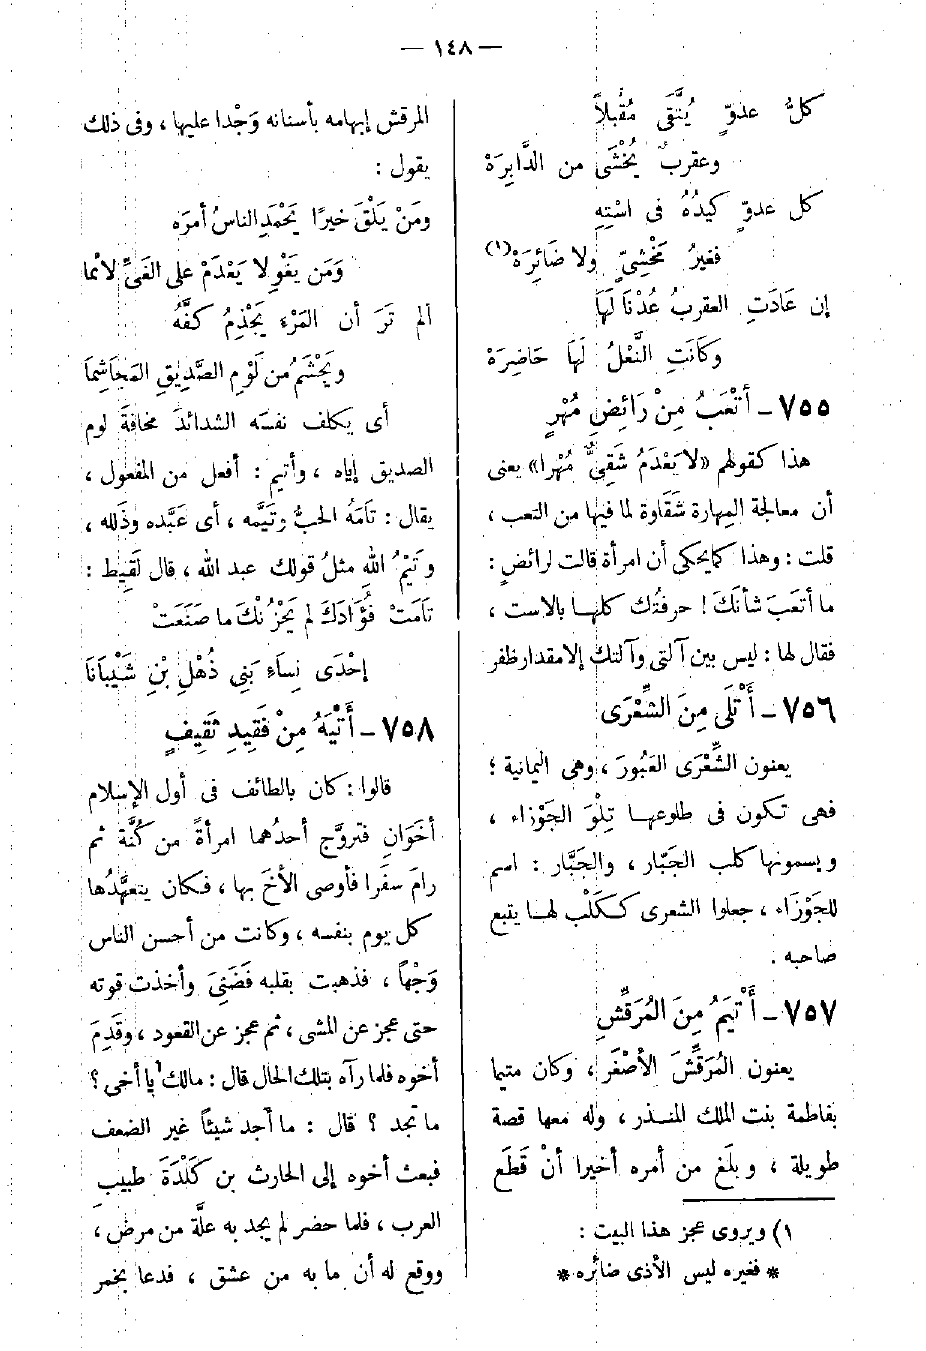 — ١٤٨ —
كلُّ عدوٍّ يُتَّقَى مُقْبلاً
وعقربٌ يُخْشَى من الدَّابِرَهْ
كل عدوٍّ كيدُهُ فى اسْتِهِ
فغيرُ مَخْشِىٍّ ولا ضَائِرَهْ(١)
إن عَادَتِ العقربُ عُدْنَا لَهَا
وكَانَتِ النَّعْلُ لَهَا حَاضِرَهْ
٧٥٥ – أتْعَبُ مِنْ رَائِضِ مُهْرٍ
هذا كقولهم «لا يَعْدَمُ شَقِىٌّ مُهْرا» يعنى
أن معالجة المِهارة شَقَاوة لما فيها من التعب ،
قلت : وهذا كما يحكى أن امرأة قالت لرائضٍ :
ما أتعَبَ شأنَكَ ! حرفتُك كلها بالاست ،
فقال لها : ليس بين آلتى وآلتك إلا مقدار ظفر
٧٥٦ – أَتْلَى مِنَ الشِّعْرَى
يعنون الشِّعْرَى العَبُورَ ، وهى اليمانية ؛
فهى تكون فى طلوعها تِلْوَ الجَوْزاء ،
ويسمونها كلب الجَبّار ، والجَبَّار : اسم
للجَوْزَاء ، جعلوا الشعرى ككَلْب لها يتبع
صاحبه .
٧٥٧ – أَتْيَمُ مِنَ المُرَقِّشِ
يعنون المُرَقِّشَ الأصْغَر ، وكان متيما
بفاطمة بنت الملك المنذر ، وله معها قصة
طويلة ، وبلغ من أمره أخيرا أنْ قَطَع
١) ويروى عجز هذا البيت :
* فغيره ليس الأذى ضائره *
المرقش إبهامه بأسنانه وَجْدا عليها ، وفى ذلك
يقول :
ومَنْ يَلْقَ خيرًا يَحْمَدِ الناسُ أمرَه
وَمَن يَغْوِ لا يَعْدَمْ على الغَىِّ لائما
ألم تَرَ أن المَرْءَ يَجْذِمُ كفَّهُ
ويَجْشَمُ من لَوْمِ الصَّدِيقِ المَجَاشِمَا
أى يكلف نفسَه الشدائدَ مخافةَ لوم
الصديق إياه ، وأتيم : أفعل من المفعول ،
يقال : تَامَهُ الحبُّ وتَيَّمه ، أى عَبَّده وذَلله ،
وتَيْمُ اللهِ مثلُ قولك عبد الله ، قال لَقِيط :
تَامَتْ فُؤَادَكَ لم يَحْزُنْكَ ما صَنَعَتْ
إحْدَى نِسَاءِ بَنِى ذُهْلِ بْنِ شَيْبَانَا
٧٥٨ – أَتْيَهُ مِنْ فَقِيدِ ثَقِيفٍ
قالوا : كان بالطائف فى أول الإسلام
أخَوَانِ فتزوَّج أحدُهما امرأةً من كُنَّة ثم
رامَ سفَرا فأوصى الأخَ بها ، فكان يتعهَّدُها
كل يوم بنفسه ، وكانت من أحسن الناس
وَجْهاً ، فذهبت بقلبه فَضَنِىَ وأخذت قوته
حتى عجز عن المشى ، ثم عجز عن القعود ، وقَدِمَ
أخوه فلما رآه بتلك الحال قال : مالك يا أخى ؟
ما تجد ؟ قال : ما أجد شيئاً غير الضعف
فبعث أخوه إلى الحارث بن كَلْدَةَ طبيبِ
العرب ، فلما حضر لم يجد به علَّة من مرض ،
ووقع له أن ما به من عشق ، فدعا بخمر